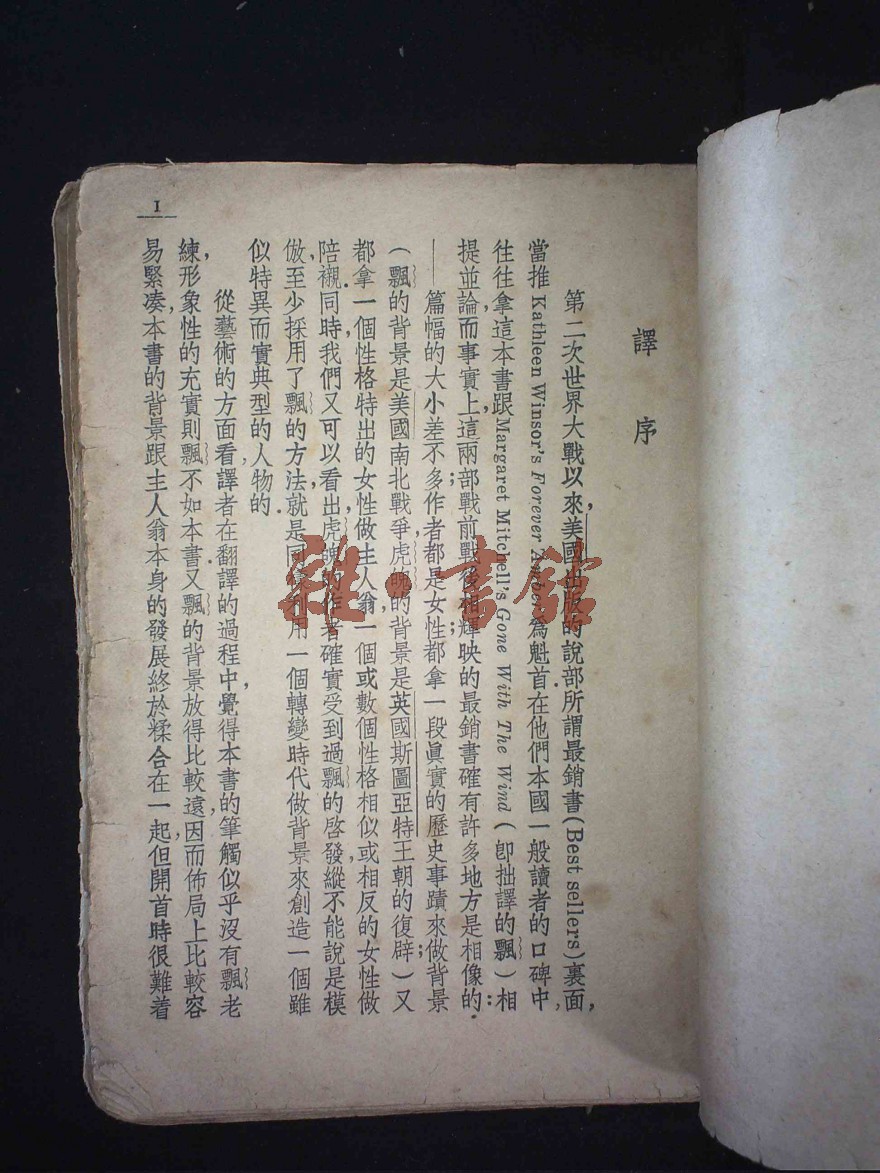 譯序
第二次世界大戰以來,美國出版的說部所謂最銷書(Best sellers)裏面,
當推Kathleen Winsor's Forever Amber為魁首.在他們本國一般讀者的口碑中,
往往拿這本書跟Margaret Mitchell's Gone With The Wind(卽拙譯的飄)相
提並論,而事實上,這兩部戰前戰後相輝映的最銷書確有許多地方是相像的:
——篇幅的大小差不多;作者都是女性;都拿一段眞實的歷史事蹟來做背景
(飄的背景是美國南北戰爭,虎魄的背景是英國斯圖亞特王朝的復辟);又
都拿一個性格特出的女性做主人翁,一個或數個性格相似或相反的女性做
陪襯.同時,我們又可以看出,虎魄的作者確實受到過飄的啓發,縱不能說是模
倣,至少採用了飄的方法,就是同樣利用一個轉變時代做背景來創造一個雖
似特異而實典型的人物的.
從藝術的方面看,譯者在翻譯的過程中,覺得本書的筆觸似乎沒有飄老
練,形象性的充實則飄不如本書.又飄的背景放得比較遠,因而佈局上比較容
易緊湊,本書的背景跟主人翁本身的發展終於糅合在一起,但開首時很難着
I
雜·書館